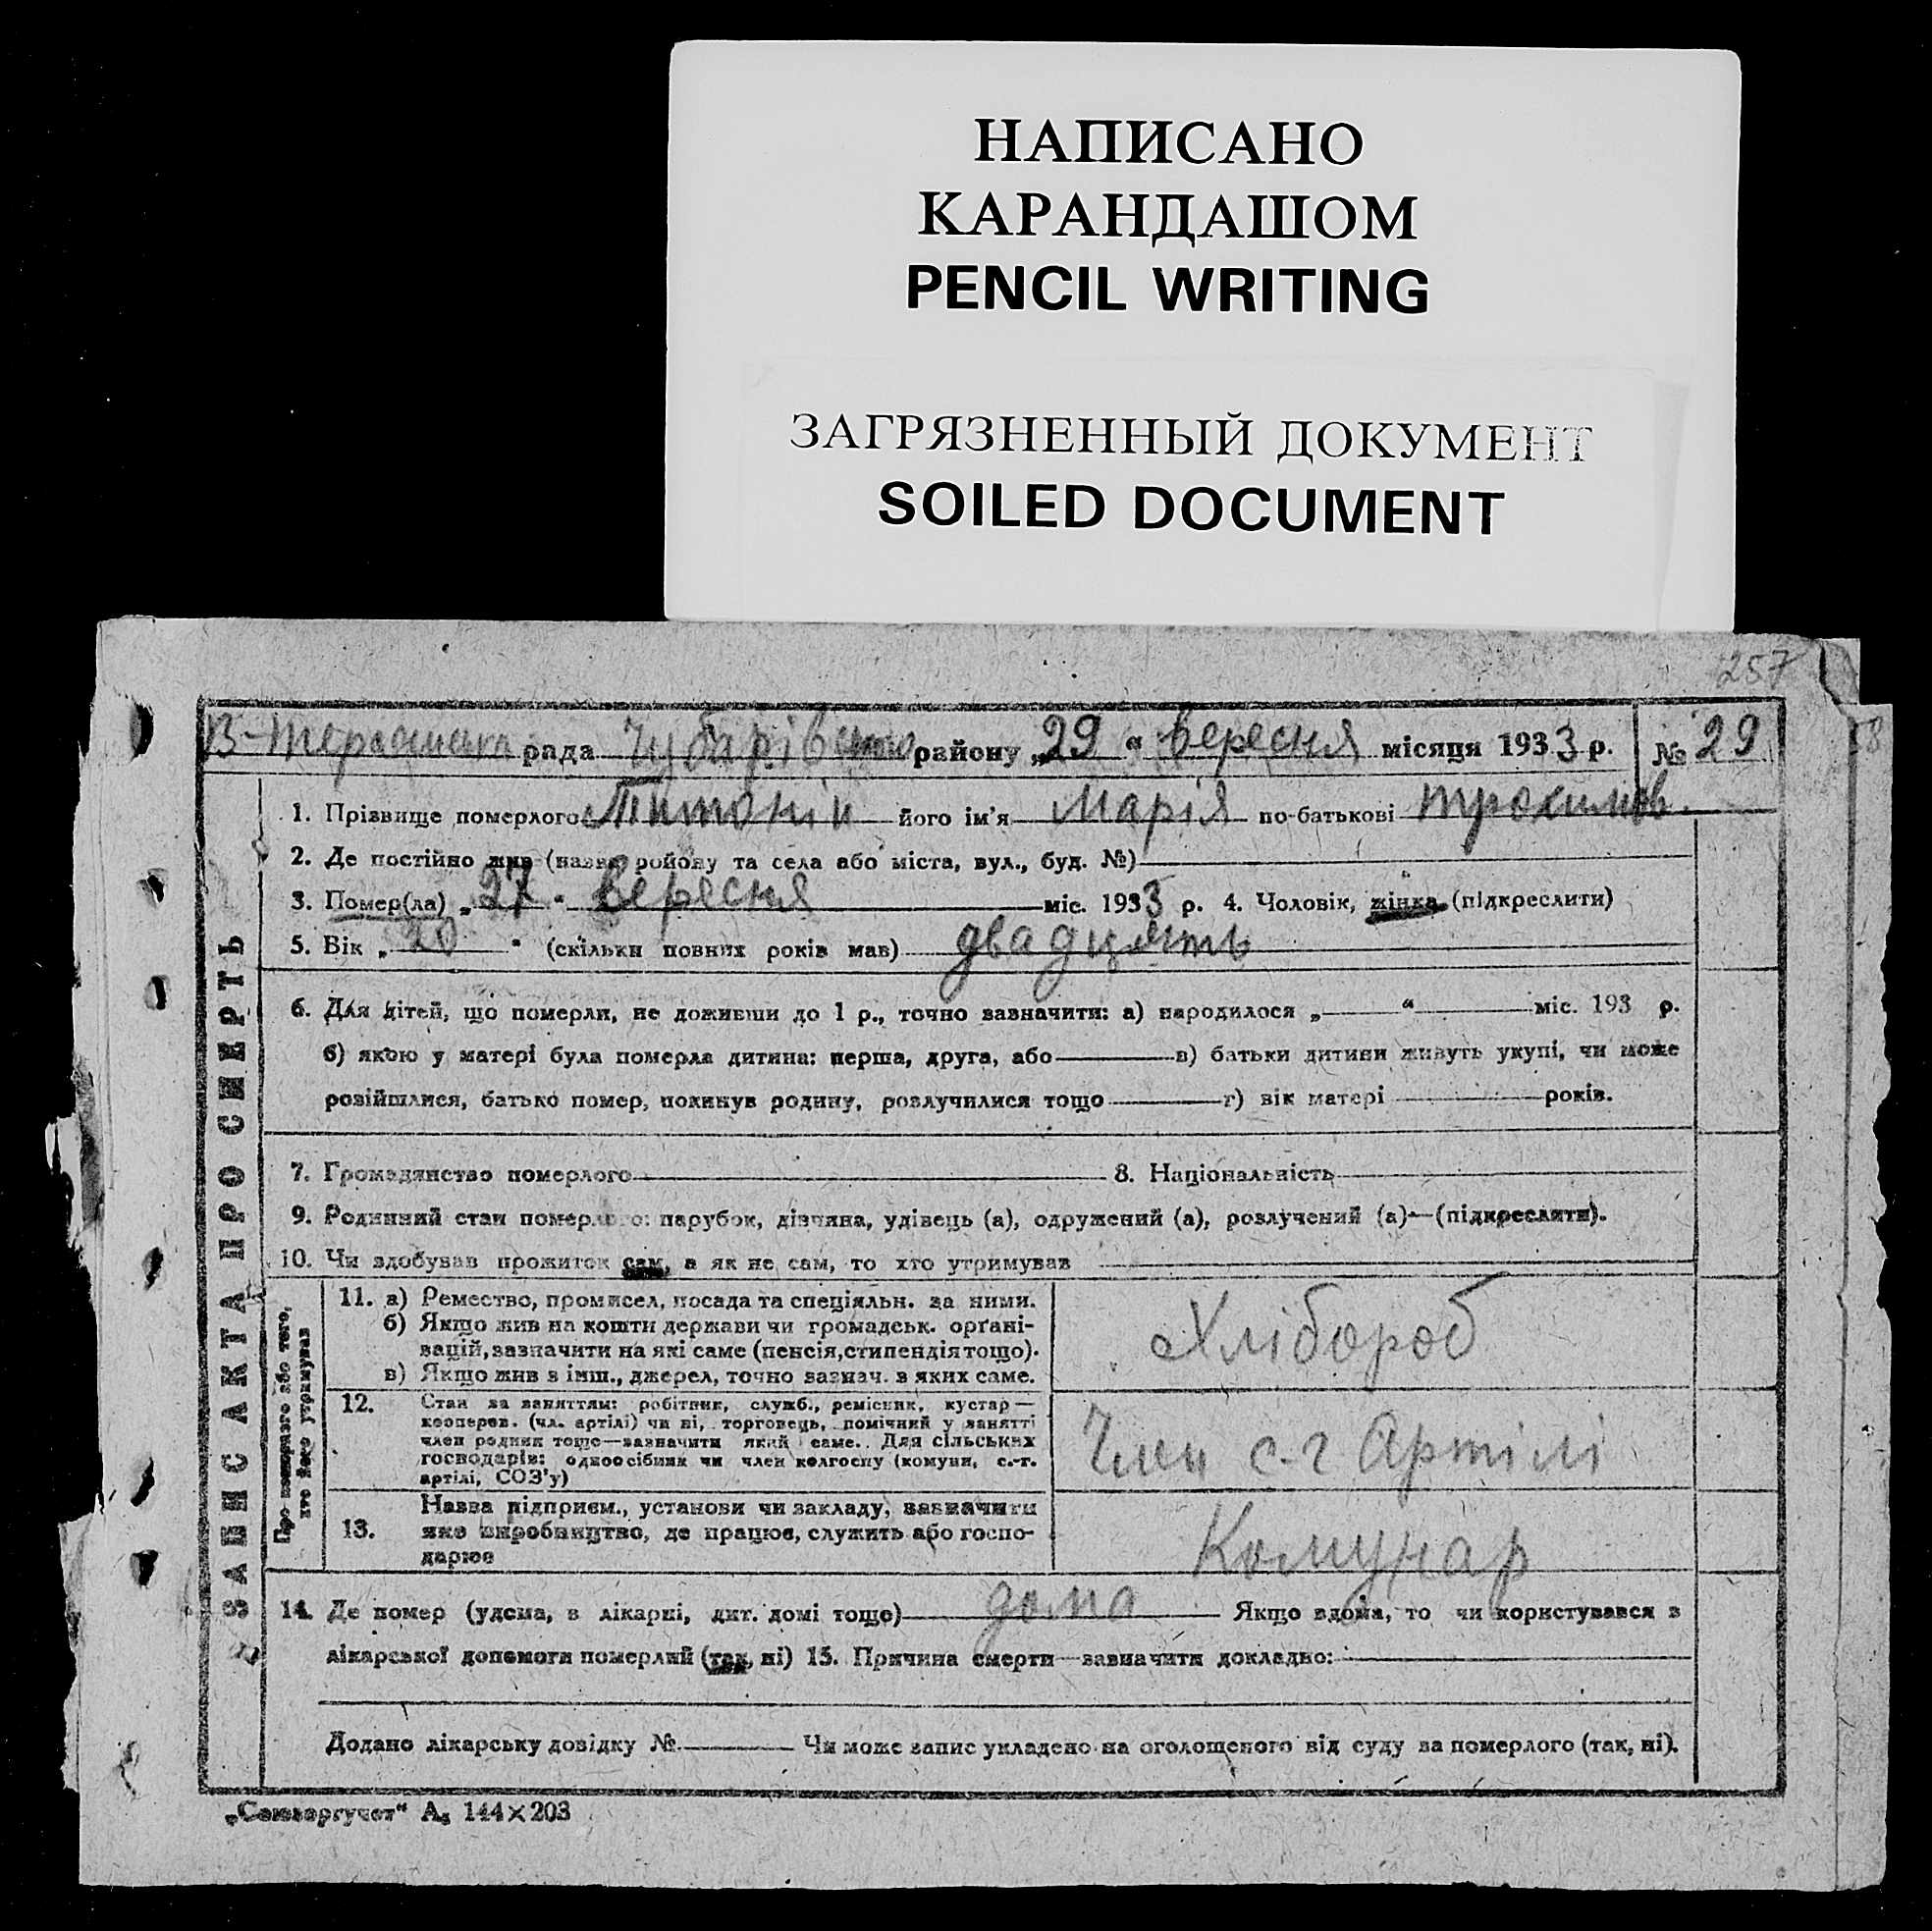 НАПИСАНО
КАРАНДАШОМ
PENCIL WRITING
ЗАГРЯЗНЕННЫЙ ДОКУМЕНТ
SOILED DOCUMENT
257
рада Чубарівського району „29“ вересня місяця 1933 р. № 29
ЗАПИС АКТА ПРО СМЕРТЬ
1. Прізвище померлого його ім'я Марія по-батькові Трохимов.
2. Де постійно жив (назва району та села або міста, вул., буд. №)
3. Помер(ла) „27“ вересня міс. 1933 р. 4. Чоловік, жінка (підкреслити)
5. Вік „20“ (скільки повних років мав) двадцять
6. Для дітей, що померли, не доживши до 1 р., точно зазначити: а) народилося „ “ міс. 193 р.
б) якою у матері була померла дитина: перша, друга, або в) батьки дитини живуть укупі, чи може
розійшлися, батько помер, покинув родину, розлучилися тощо г) вік матері років.
7. Громадянство померлого 8. Національність
9. Родинний стан померлого: парубок, дівчина, удівець (а), одружений (а), розлучений (а)—(підкреслити).
10. Чи здобував прожиток сам, а як не сам, то хто утримував
Про померлого або того,
хто його утримував
11. а) Ремество, промисел, посада та спеціяльн. за ними.
б) Якщо жив на кошти держави чи громадськ. орґані-
зацій, зазначити на які саме (пенсія, стипендія тощо).
в) Якщо жив з інш., джерел, точно зазнач. з яких саме.
Хлібороб
12. Стан за заняттям: робітник, служб., ремісник, кустар—
кооперов. (чл. артілі) чи ні, торговець, помічний у занятті
член родини тощо—зазначити який саме. Для сільських
господарів: одноосібник чи член колгоспу (комуни, с.-г.
артілі, СОЗ'у)
Член с-г Артілі
13. Назва підприєм., установи чи закладу, зазначити
яке виробництво, де працює, служить або госпо-
дарює
Комунар
14. Де помер (удома, в лікарні, дит. домі тощо) дома Якщо вдома, то чи користувався з
лікарської допомоги померлий (так, ні) 15. Причина смерти—зазначити докладно:
Додано лікарську довідку № Чи може запис укладено на оголошеного від суду за померлого (так, ні).
„Союзоргучет“ А₅ 144×203